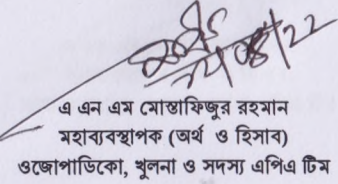 এ এন এম মোস্তাফিজুর রহমান
মহাব্যবস্থাপক (অর্থ ও হিসাব)
ওজোপাডিকো, খুলনা ও সদস্য এপিএ টিম